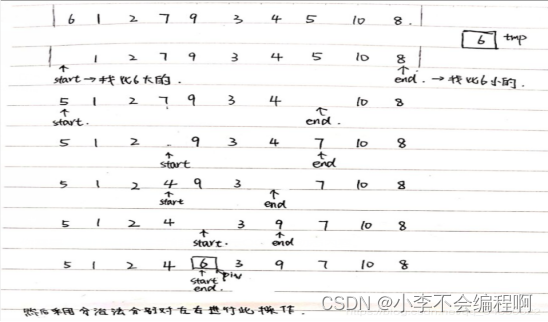 6 1 2 7 9 3 4 5 10 8
6 tmp
1 2 7 9 3 4 5 10 8
start → 找比6大的. end. → 找比6小的.
5 1 2 7 9 3 4 10 8
start. end.
5 1 2 9 3 4 7 10 8
start end
5 1 2 4 9 3 7 10 8
start end
5 1 2 4 3 9 7 10 8
start. end
5 1 2 4 6 3 9 7 10 8
start piv
end.
然后采用分治法分别对左右进行此操作.
CSDN @小李不会编程啊